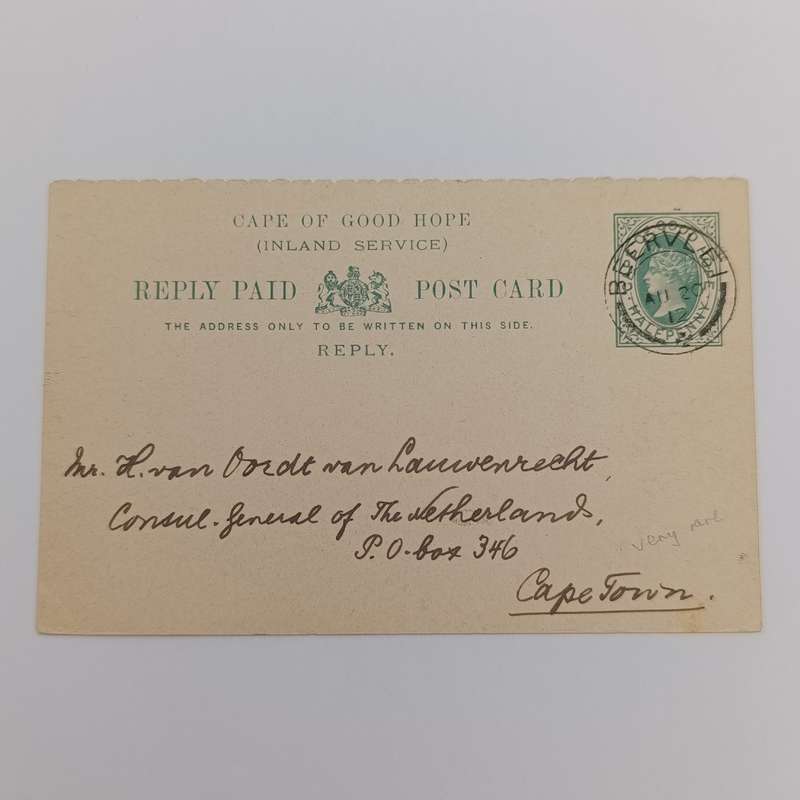 CAPE OF GOOD HOPE
(INLAND SERVICE)
REPLY PAID POST CARD
THE ADDRESS ONLY TO BE WRITTEN ON THIS SIDE.
REPLY.
HALFPENNY
AU 20
12
Mr. H. van Oordt van Lauwenrecht,
Consul-General of The Netherlands,
P.O-box 346
Cape Town.
very rare